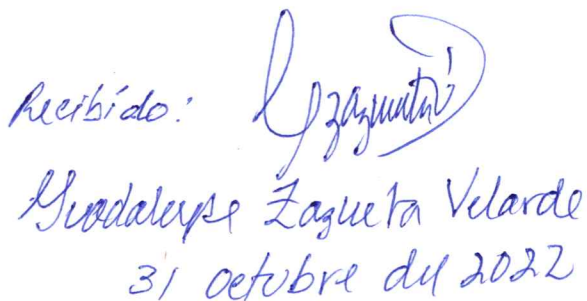 Recibido:
Guadalupe Zazueta Velarde
31 octubre del 2022